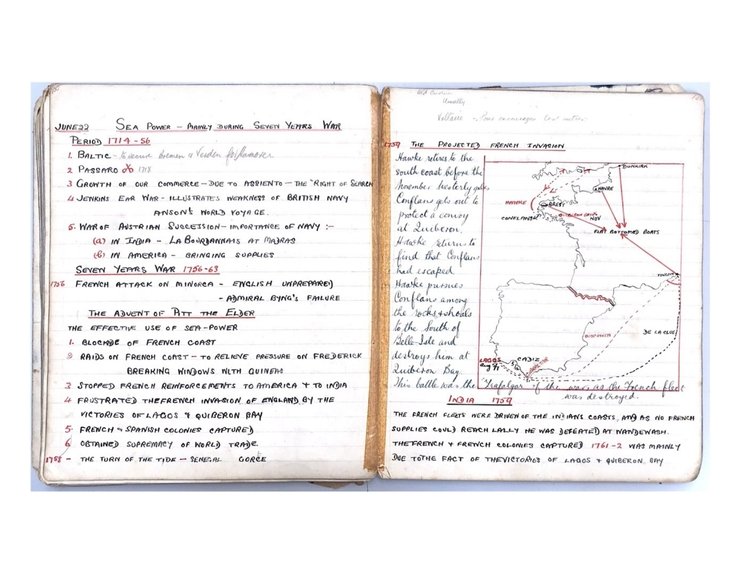 JUNE 22 SEA POWER - MAINLY DURING SEVEN YEARS WAR
PERIOD 1714-56
1 BALTIC - To secure Bremen & Verden for Hanover
2 PASSARO 1718
3 GROWTH OF OUR COMMERCE - DUE TO ASSIENTO - THE "RIGHT OF SEARCH
4 JENKINS EAR WAR - ILLUSTRATES WEAKNESS OF BRITISH NAVY
ANSON'S WORLD VOYAGE.
5. WAR OF AUSTRIAN SUCCESSION - IMPORTANCE OF NAVY :-
(a) IN INDIA - LA BOURDANNAIS AT MADRAS
(b) IN AMERICA - BRINGING SUPPLIES
SEVEN YEARS WAR 1756-63
1756 FRENCH ATTACK ON MINORCA - ENGLISH UNPREPARED
- ADMIRAL BYNG'S FAILURE
THE ADVENT OF PITT THE ELDER
THE EFFECTIVE USE OF SEA-POWER
1. BLOCKADE OF FRENCH COAST
2 RAIDS ON FRENCH COAST - TO RELIEVE PRESSURE ON FREDERICK
BREAKING WINDOWS WITH GUINEAS
3 STOPPED FRENCH REINFORCEMENTS TO AMERICA & TO INDIA
4 FRUSTRATED THE FRENCH INVASION OF ENGLAND BY THE
VICTORIES OF LAGOS & QUIBERON BAY
5 FRENCH & SPANISH COLONIES CAPTURED
6 OBTAINED SUPREMACY OF WORLD TRADE
1758 - THE TURN OF THE TIDE - SENEGAL GOREE
Voltaire
1759 THE PROJECTED FRENCH INVASION
Hawke retires to the
south coast before the
November Westerly gales
Conflans gets out to
protect a convoy
at Quiberon.
Hawke returns to
find that Conflans
had escaped
Hawke pursues
Conflans among
the rocks & shoals
to the South of
Belle-Isle and
destroys him at
Quiberon Bay.
This battle was the "Trafalgar" of the war as the French fleet
was destroyed.
DUNKIRK
HAVRE
HAWKE
BREST
CONFLANS
QUIBERON
NOV
FLAT BOTTOMED BOATS
TOULON
DE LA CLUE
BOSCAWEN
CADIZ
LAGOS
INDIA 1759
THE FRENCH FLEETS WERE DRIVEN OF THE INDIANS COASTS, AND AS NO FRENCH
SUPPLIES COULD REACH LALLY HE WAS DEFEATED AT WANDEWASH.
THE FRENCH & FRENCH COLONIES CAPTURED 1761-2 WAS MAINLY
DUE TO THE FACT OF THE VICTORIES OF LAGOS & QUIBERON BAY